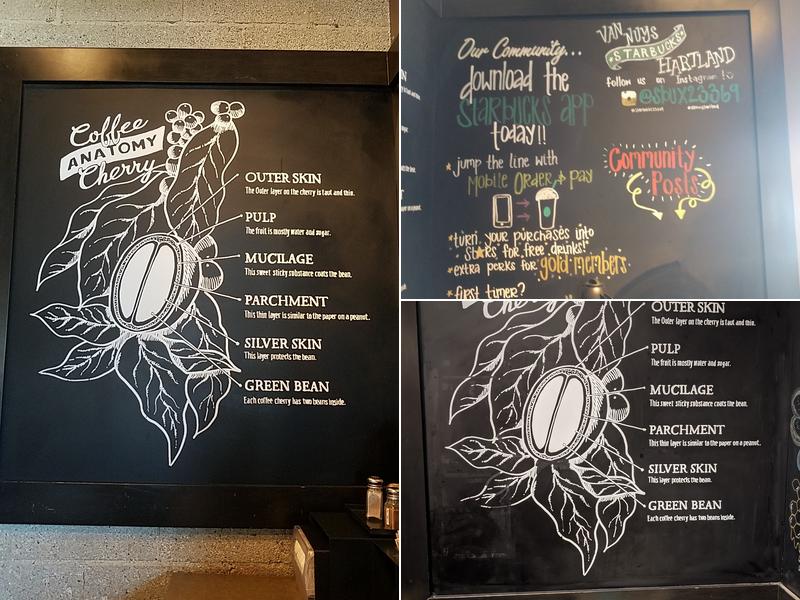 Coffee
ANATOMY
Cherry
OUTER SKIN
The Outer layer on the cherry is taut and thin.
PULP
The fruit is mostly water and sugar.
MUCILAGE
This sweet sticky substance coats the bean.
PARCHMENT
This thin layer is similar to the paper on a peanut.
SILVER SKIN
This layer protects the bean.
GREEN BEAN
Each coffee cherry has two beans inside.
Our Community...
download the
STARBUCKS app
today!!
*jump the line with
Mobile Order & pay
*turn your purchases into
stars for free drinks!
*extra perks for gold members
*first timer?
VAN NUYS
STARBUCKS
HARTLAND
follow us on Instagram!
@sbux23369
Community
Posts
Cherry
OUTER SKIN
The Outer layer on the cherry is taut and thin.
PULP
The fruit is mostly water and sugar.
MUCILAGE
This sweet sticky substance coats the bean.
PARCHMENT
This thin layer is similar to the paper on a peanut.
SILVER SKIN
This layer protects the bean.
GREEN BEAN
Each coffee cherry has two beans inside.